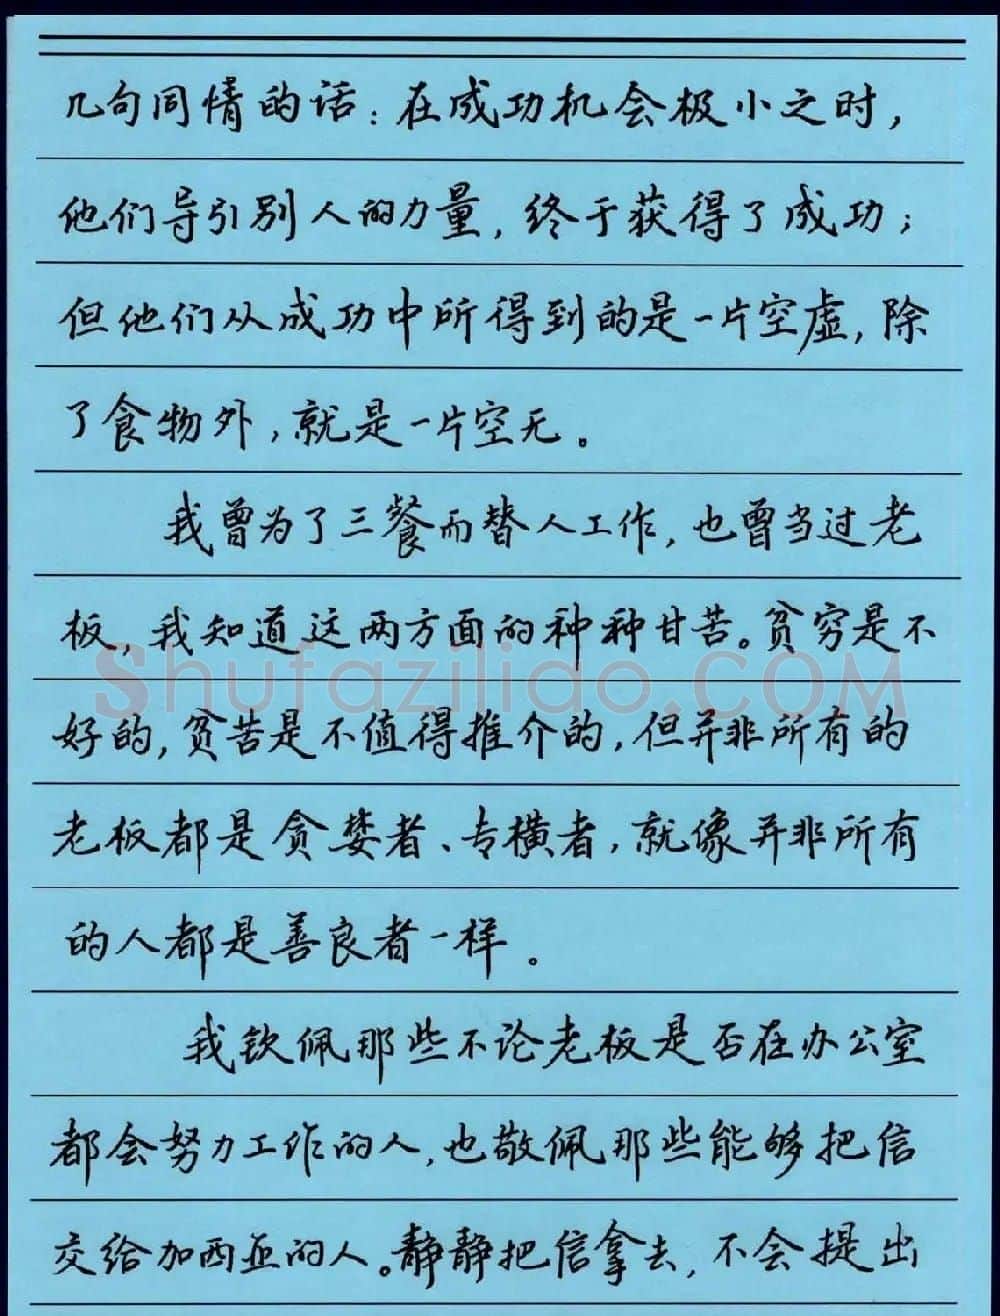 几句同情的话：在成功机会极小之时，
他们导引别人的力量，终于获得了成功；
但他们从成功中所得到的是一片空虚，除
了食物外，就是一片空无。
我曾为了三餐而替人工作，也曾当过老
板，我知道这两方面的种种甘苦。贫穷是不
好的，贫苦是不值得推介的，但并非所有的
老板都是贪婪者、专横者，就像并非所有
的人都是善良者一样。
我钦佩那些不论老板是否在办公室
都会努力工作的人，也敬佩那些能够把信
交给加西亚的人。静静把信拿去，不会提出
Shufaziliao.COM